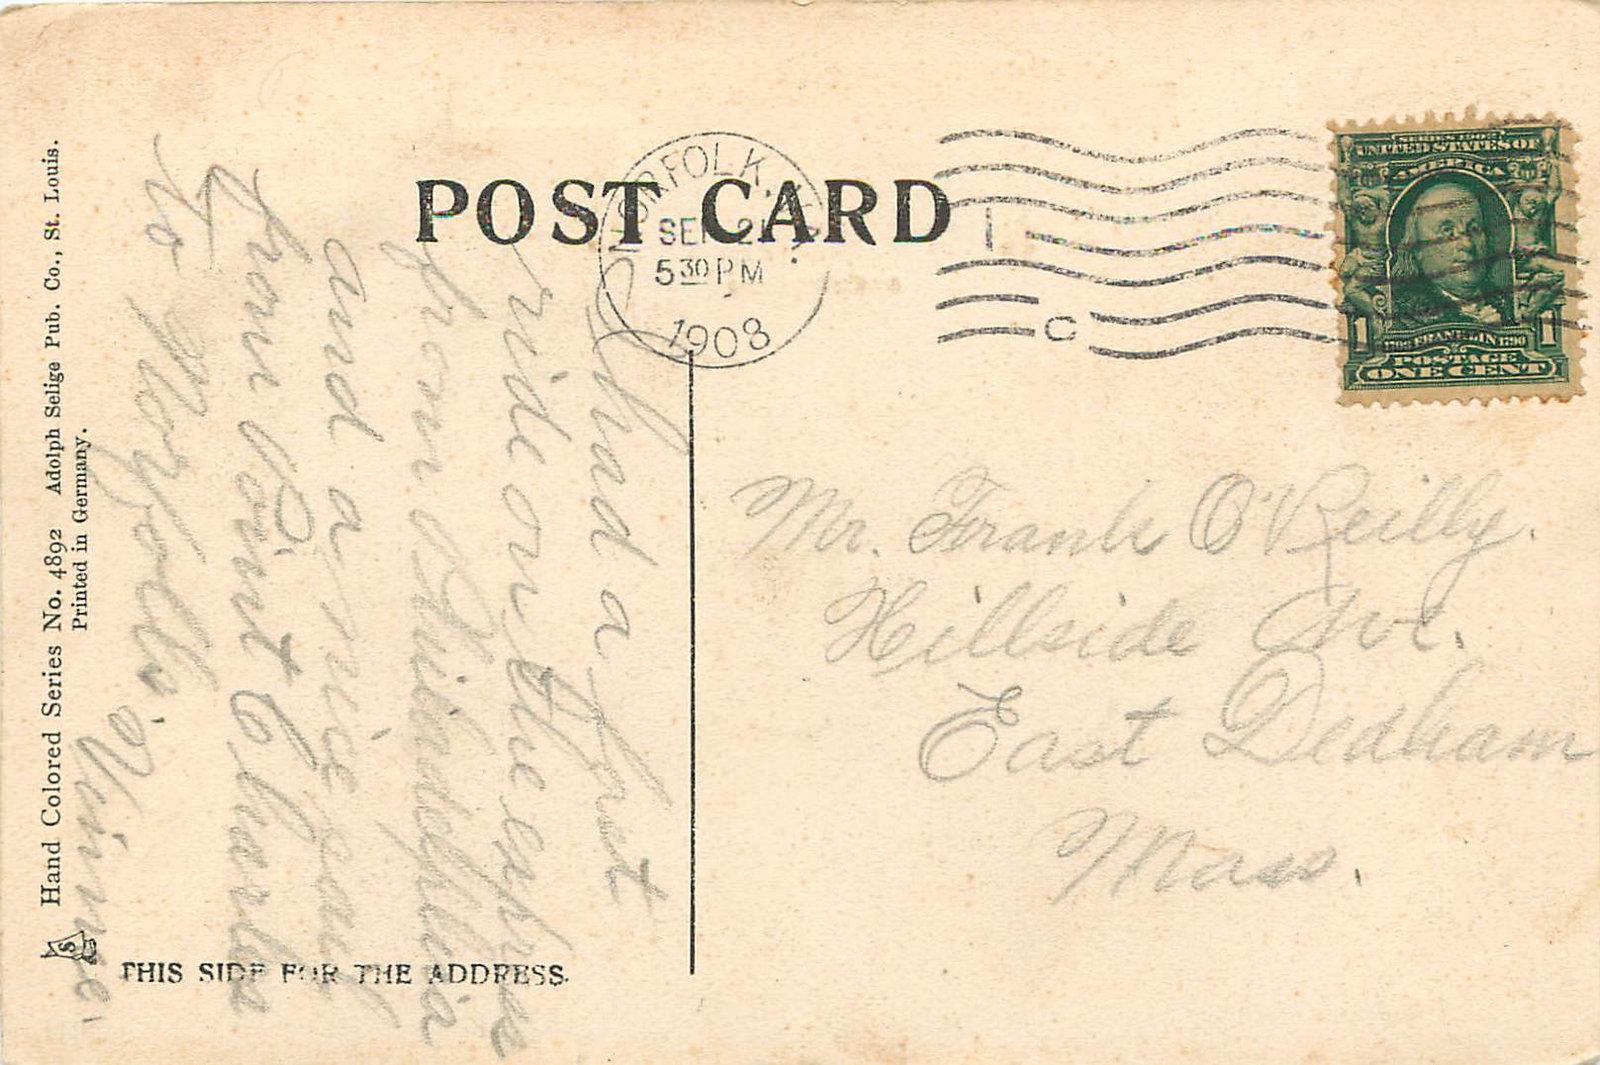 POST CARD
NORFOLK, VA.
SEP 21
5 30 PM
1908
C
SERIES 1902
UNITED STATES OF
AMERICA
1706 FRANKLIN 1790
1 1
POSTAGE
ONE CENT
Mr. Frank O'Reilly.
Hillside Ave.
East Dedham
Mass.
I had a fast
ride on the express
from Philadelphia
and a nice sail
from Point Charles
to Norfolk
"Vinnie"
Hand Colored Series No. 4892 Adolph Selige Pub. Co., St. Louis.
Printed in Germany.
S
THIS SIDE FOR THE ADDRESS.